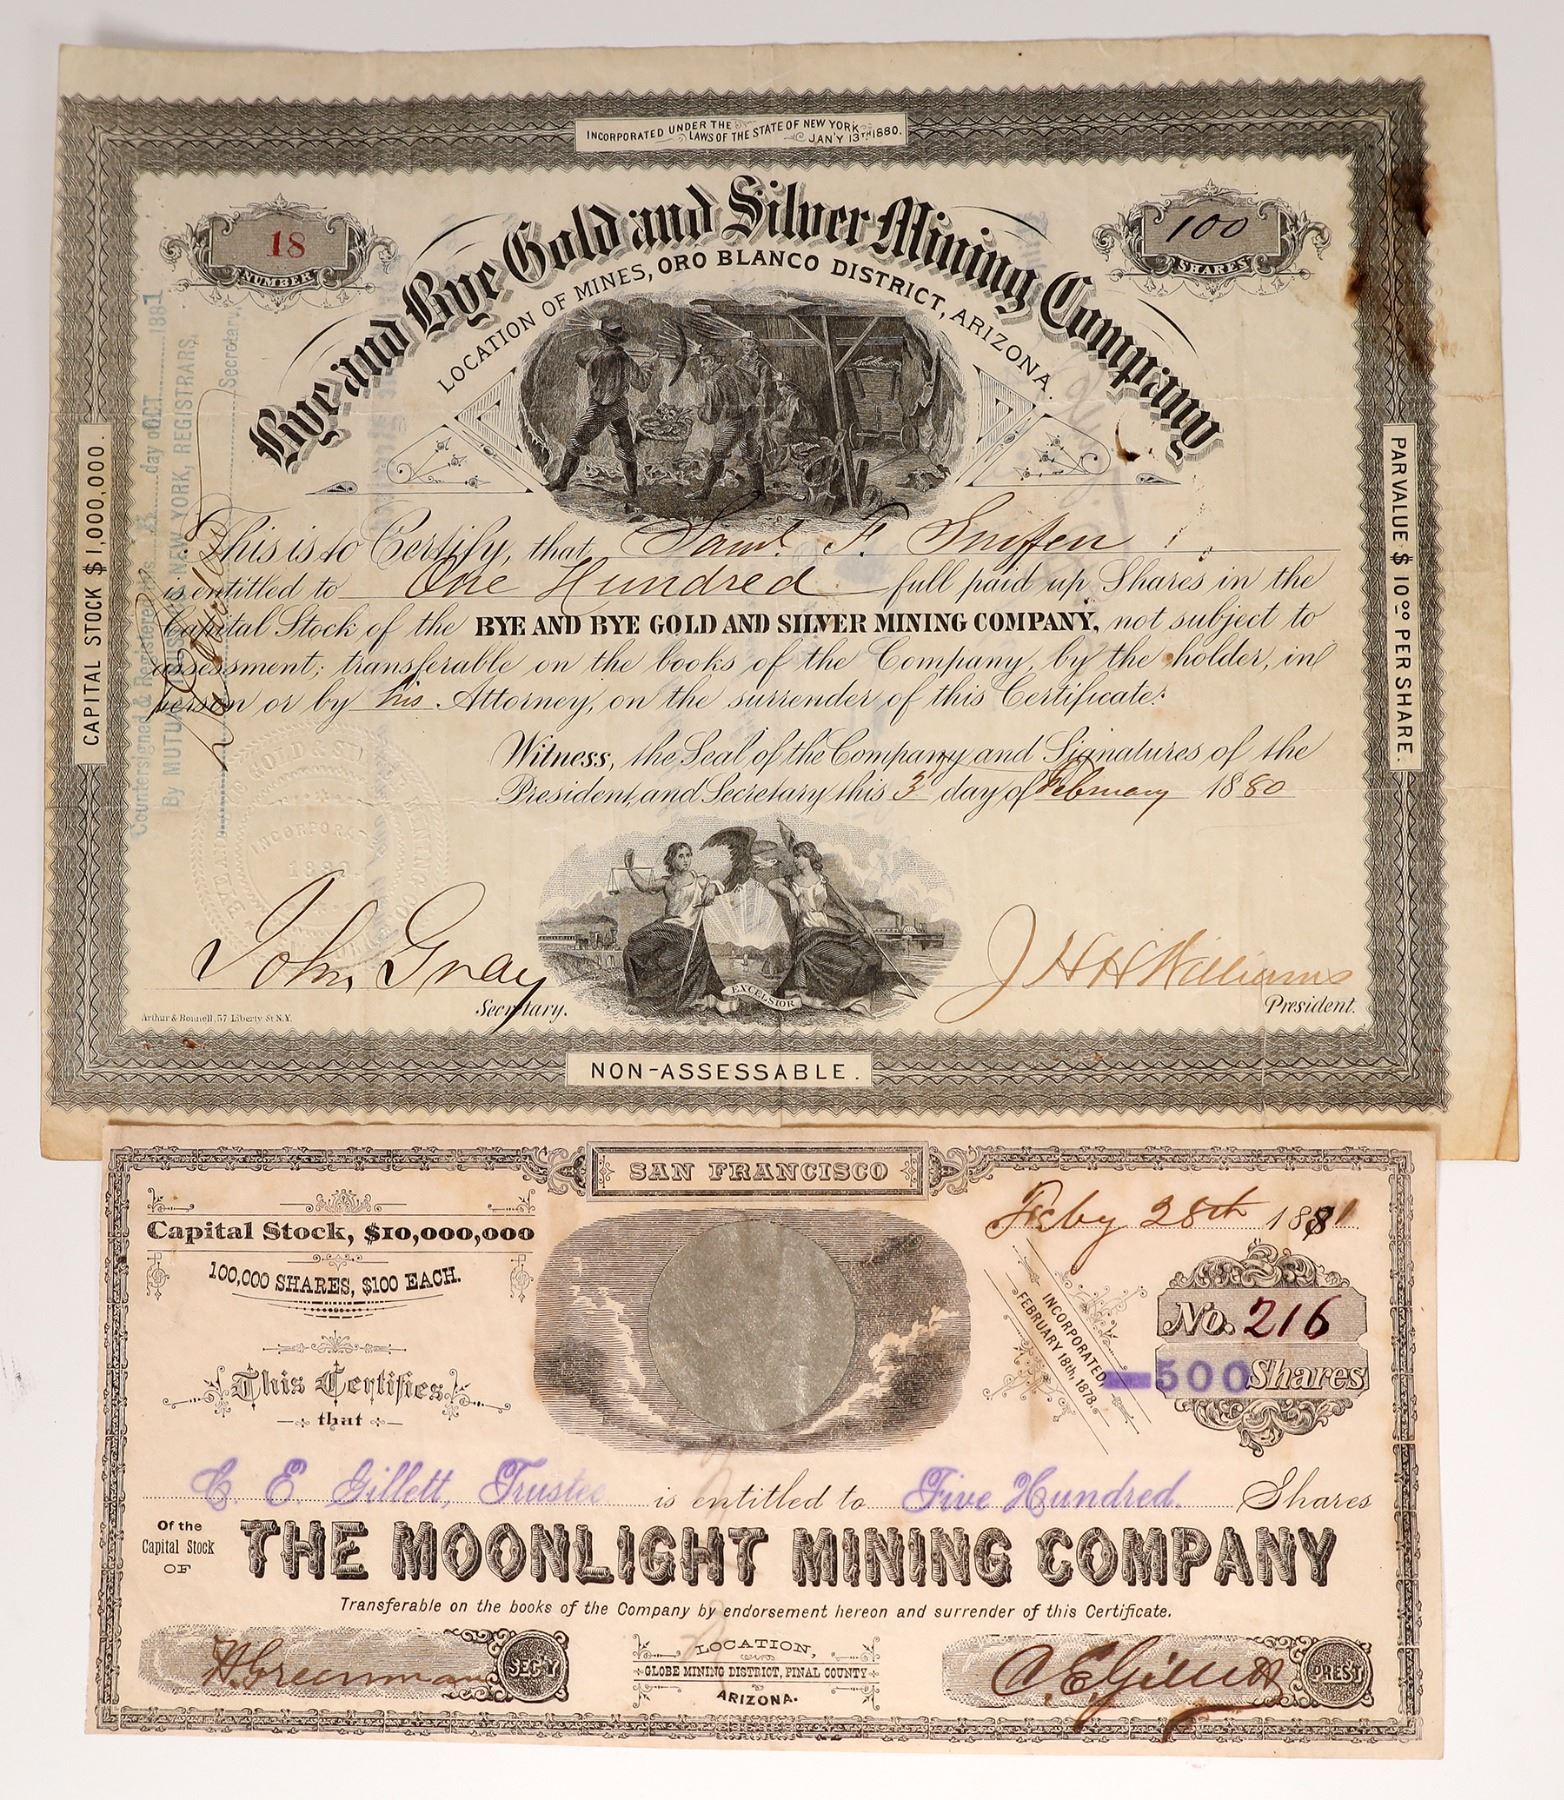 INCORPORATED UNDER THE
LAWS OF THE STATE OF NEW YORK
JAN'Y 13TH 1880.
18
NUMBER
100
SHARES
Bye and Bye Gold and Silver Mining Company
LOCATION OF MINES, ORO BLANCO DISTRICT, ARIZONA.
CAPITAL STOCK $1,000,000.
PAR VALUE $10.00 PER SHARE.
Countersigned & Registered this 25 day of OCT 1881
By MUTUAL NEW YORK, REGISTRARS,
Secretary.
This is to Certify, that Saml. F. Sniffen
is entitled to One Hundred full paid up Shares in the
Capital Stock of the BYE AND BYE GOLD AND SILVER MINING COMPANY, not subject to
assessment; transferable on the books of the Company, by the holder, in
person or by his Attorney, on the surrender of this Certificate.
Witness, the Seal of the Company and Signatures of the
President, and Secretary this 3 day of February 1880
INCORPORAT
John Gray
Secretary.
EXCELSIOR
J H H Williams
President.
Arthur & Bonnell, 57 Liberty St N.Y.
NON-ASSESSABLE.
SAN FRANCISCO
Capital Stock, $10,000,000
100,000 SHARES, $100 EACH.
Feby 28th 1881
INCORPORATED,
FEBRUARY 18th, 1878.
No. 216
500 Shares
This Certifies
that
C. E. Gillett, Trustee is entitled to Five Hundred. Shares
Of the
Capital Stock
OF
THE MOONLIGHT MINING COMPANY
Transferable on the books of the Company by endorsement hereon and surrender of this Certificate.
H. Greenman
SEC'Y
LOCATION,
GLOBE MINING DISTRICT, PINAL COUNTY
ARIZONA.
C E Gillett
PREST